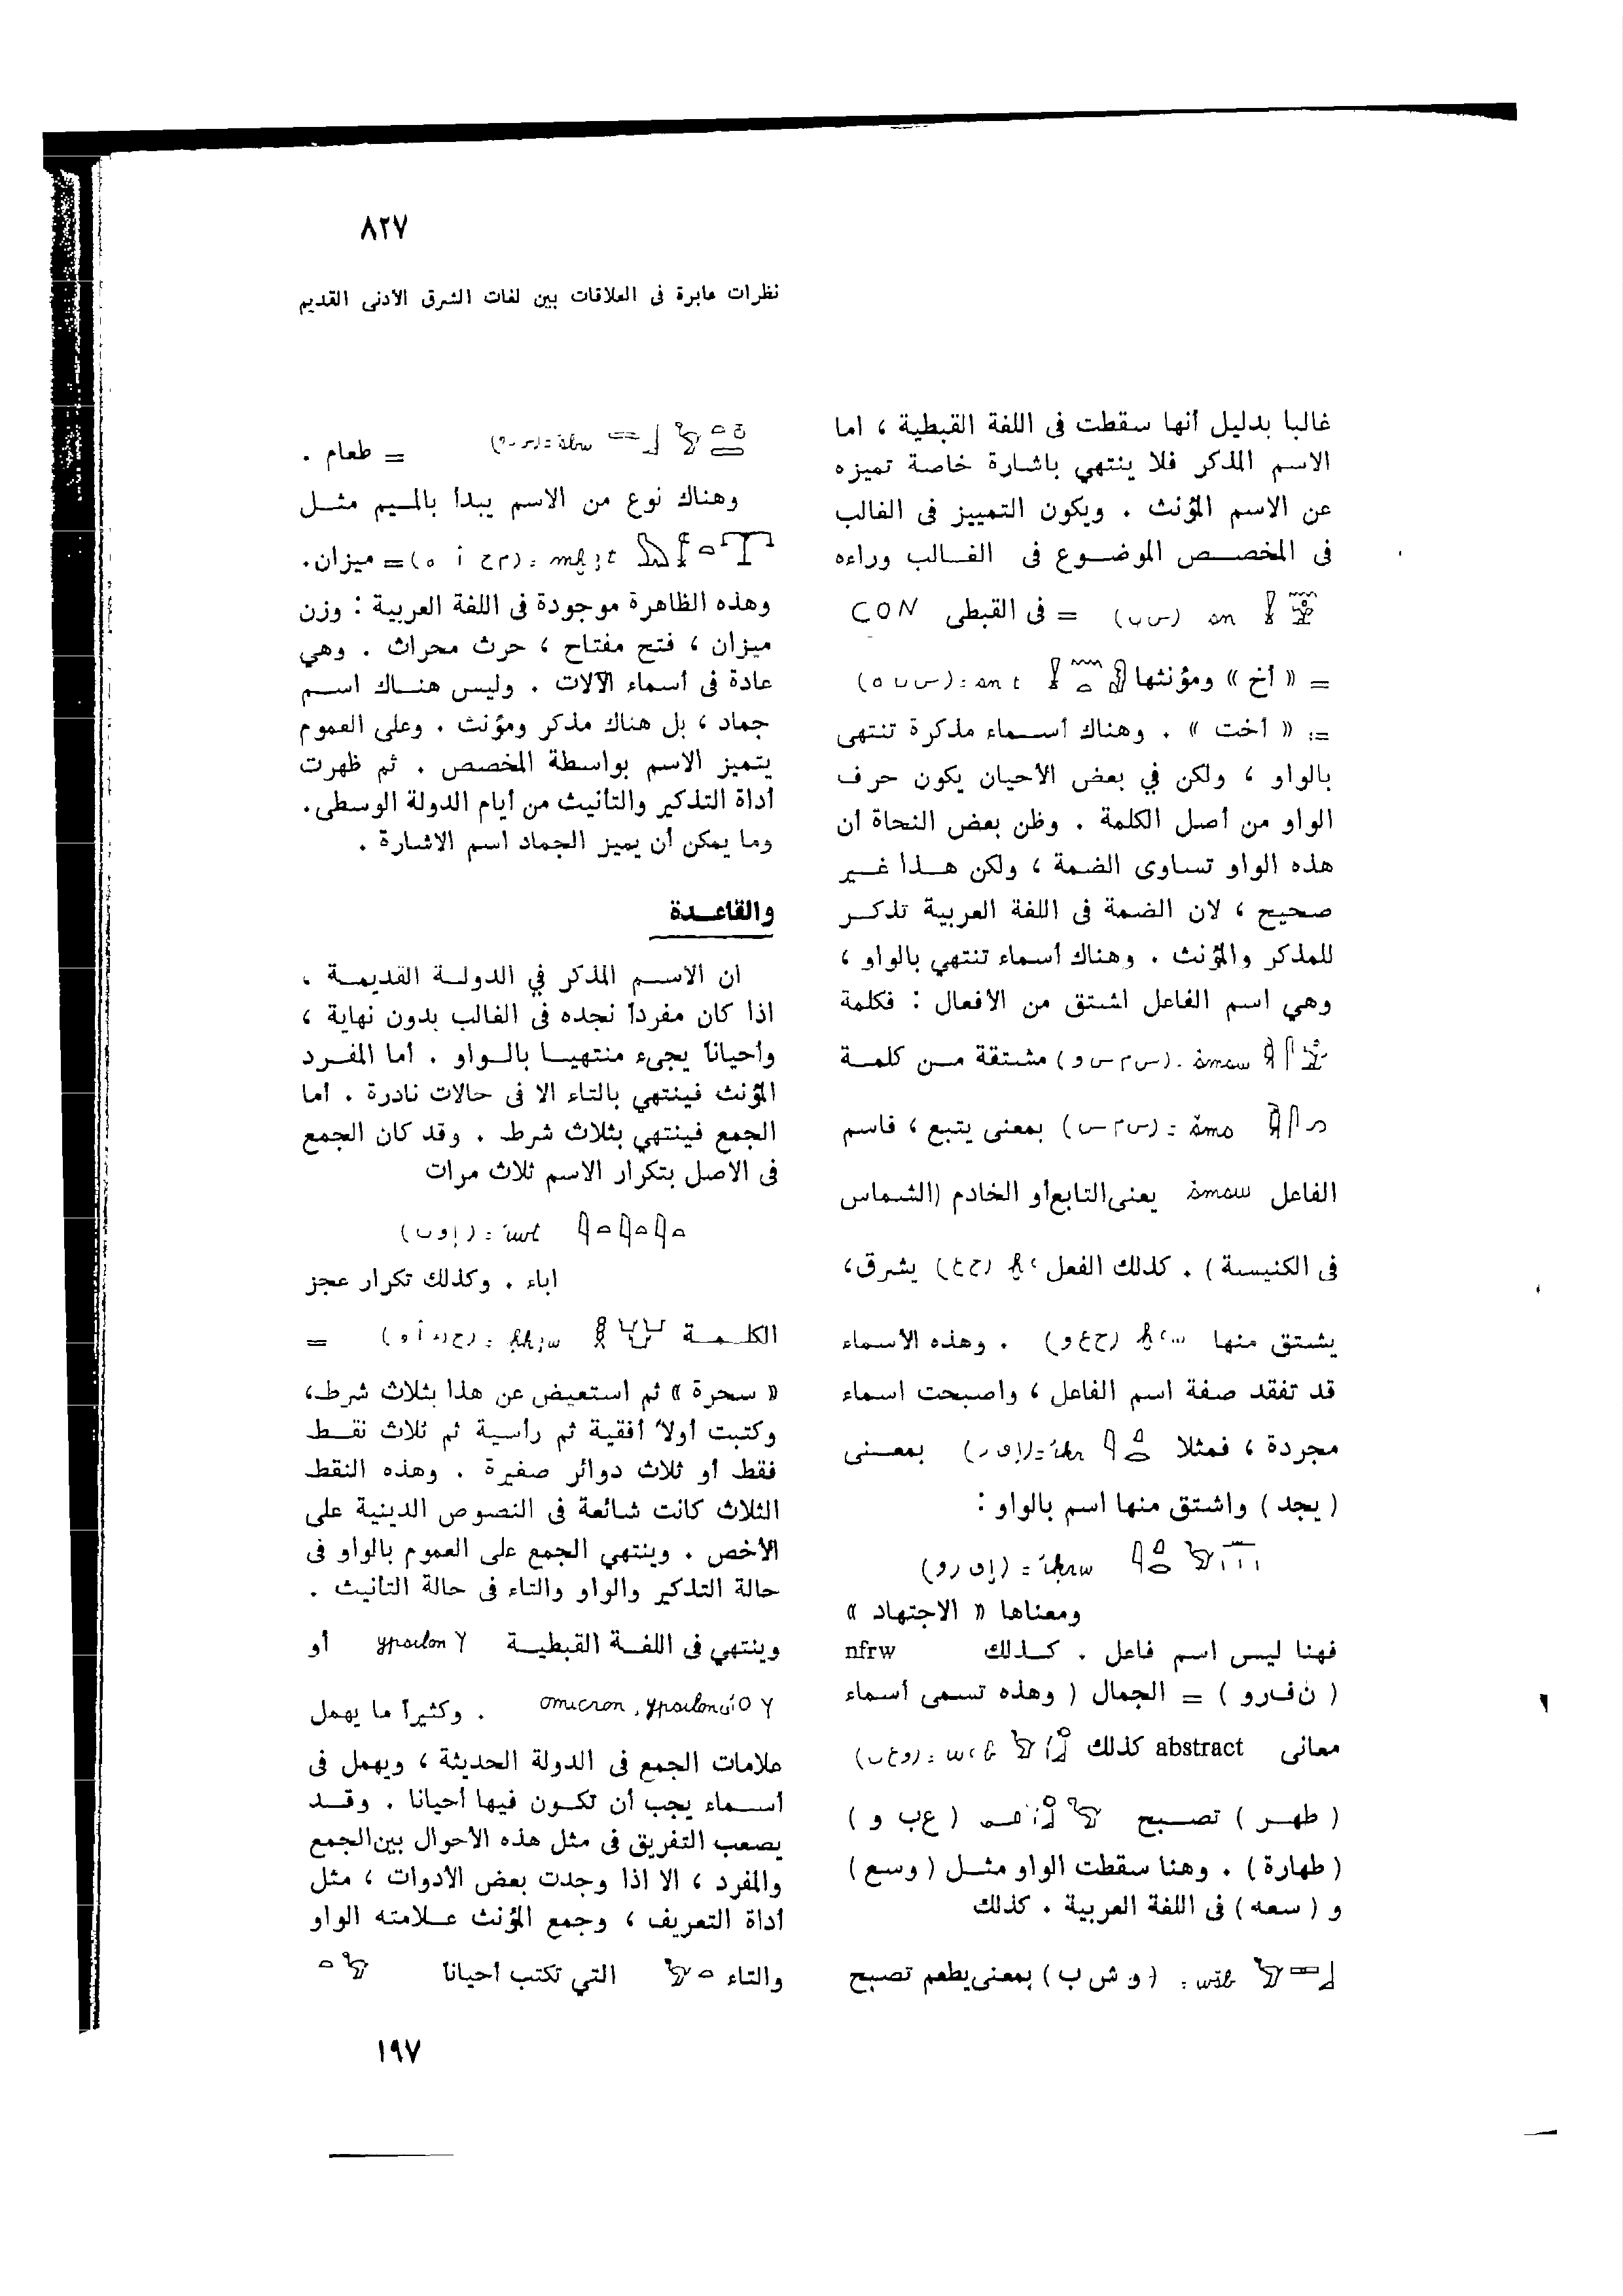 ٨٢٧
نظرات عابرة فى العلاقات بين لغات الشرق الأدنى القديم
غالبا بدليل أنها سقطت فى اللغة القبطية ، اما
الاسم المذكر فلا ينتهي باشارة خاصة تميزه
عن الاسم المؤنث . ويكون التمييز فى الغالب
فى المخصص الموضوع فى الغالب وراءه
sn (س ن) = فى القبطى CON
= « أخ » ومؤنثها snt : (س ن ه)
= : « أخت » . وهناك أسماء مذكرة تنتهى
بالواو ، ولكن في بعض الأحيان يكون حرف
الواو من أصل الكلمة . وظن بعض النحاة أن
هذه الواو تساوى الضمة ، ولكن هذا غير
صحيح ، لان الضمة فى اللغة العربية تذكر
للمذكر والمؤنث . وهناك أسماء تنتهي بالواو ،
وهي اسم الفاعل اشتق من الأفعال : فكلمة
śmsw . (س م س و) مشتقة من كلمة
śms : (س م س) بمعنى يتبع ، فاسم
الفاعل śmsw يعنى التابع أو الخادم (الشماس
فى الكنيسة) . كذلك الفعل (خ ع) يشرق،
يشتق منها (خ ع و) . وهذه الأسماء
قد تفقد صفة اسم الفاعل ، واصبحت اسماء
مجردة ، فمثلا iḳr = (إ ق ر) بمعنى
( يجد ) واشتق منها اسم بالواو :
iḳrw = (إ ق ر و)
ومعناها « الاجتهاد »
فهنا ليس اسم فاعل . كذلك nfrw
( ن ف ر و ) = الجمال ( وهذه تسمى أسماء
معانى abstract كذلك wʿb : (و ع ب)
( طهر ) تصبح ( ع ب و )
( طهارة ) . وهنا سقطت الواو مثل ( وسع )
و ( سعه ) فى اللغة العربية . كذلك
wšb : ( و ش ب ) بمعنى يطعم تصبح
= طعام .
وهناك نوع من الاسم يبدأ بالميم مثل
mḫ3t : (م خ أ ه) = ميزان.
وهذه الظاهرة موجودة فى اللغة العربية : وزن
ميزان ، فتح مفتاح ، حرث محراث . وهي
عادة فى أسماء الآلات . وليس هناك اسم
جماد ، بل هناك مذكر ومؤنث . وعلى العموم
يتميز الاسم بواسطة المخصص . ثم ظهرت
أداة التذكير والتأنيث من أيام الدولة الوسطى.
وما يمكن أن يميز الجماد اسم الاشارة .
والقاعدة
ان الاسم المذكر في الدولة القديمة .
اذا كان مفرداً نجده فى الغالب بدون نهاية ،
وأحياناً يجىء منتهيا بالواو . أما المفرد
المؤنث فينتهي بالتاء الا فى حالات نادرة . أما
الجمع فينتهي بثلاث شرط . وقد كان الجمع
فى الاصل بتكرار الاسم ثلاث مرات
iwt : (إ و ت)
اباء . وكذلك تكرار عجز
الكلمة =
« سحرة » ثم استعيض عن هذا بثلاث شرط،
وكتبت أولاً أفقية ثم رأسية ثم ثلاث نقط
فقط أو ثلاث دوائر صغيرة . وهذه النقط
الثلاث كانت شائعة فى النصوص الدينية على
الأخص . وينتهي الجمع على العموم بالواو فى
حالة التذكير والواو والتاء فى حالة التأنيث .
وينتهي فى اللغة القبطية ypsilon Y أو
omicron, ypsilon OY . وكثيراً ما يهمل
علامات الجمع فى الدولة الحديثة ، ويهمل فى
أسماء يجب أن تكون فيها أحيانا . وقد
يصعب التفريق فى مثل هذه الأحوال بين الجمع
والمفرد ، الا اذا وجدت بعض الأدوات ، مثل
أداة التعريف ، وجمع المؤنث علامته الواو
والتاء التي تكتب أحياناً
١٩٧